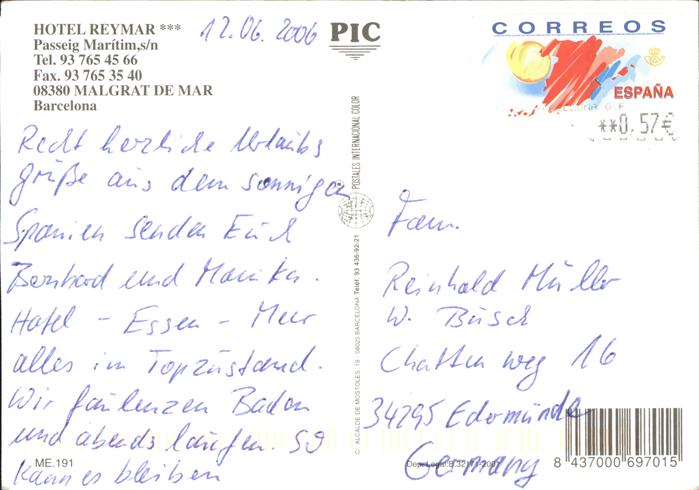 HOTEL REYMAR ***
Passeig Marítim,s/n
Tel. 93 765 45 66
Fax. 93 765 35 40
08380 MALGRAT DE MAR
Barcelona
12.06.2006
PIC
CORREOS
ESPAÑA
**0,57€
Recht herzliche Urlaubs
grüße aus dem sonnigen
Spanien senden Euch
Bernhard und Monika.
Hotel - Essen - Meer
alles im Topzustand.
Wir faulenzen Baden
und abends laufen. So
kann es bleiben
ME.191
POSTALES INTERNACIONAL COLOR
C/. ALCALDE DE MOSTOLES, 19 - 08025 BARCELONA Telef. 93 436-92-21
Fam.
Reinhold Müller
W. Busch
Chatten weg 16
34295 Edermünde
Germany
8 437000 697015